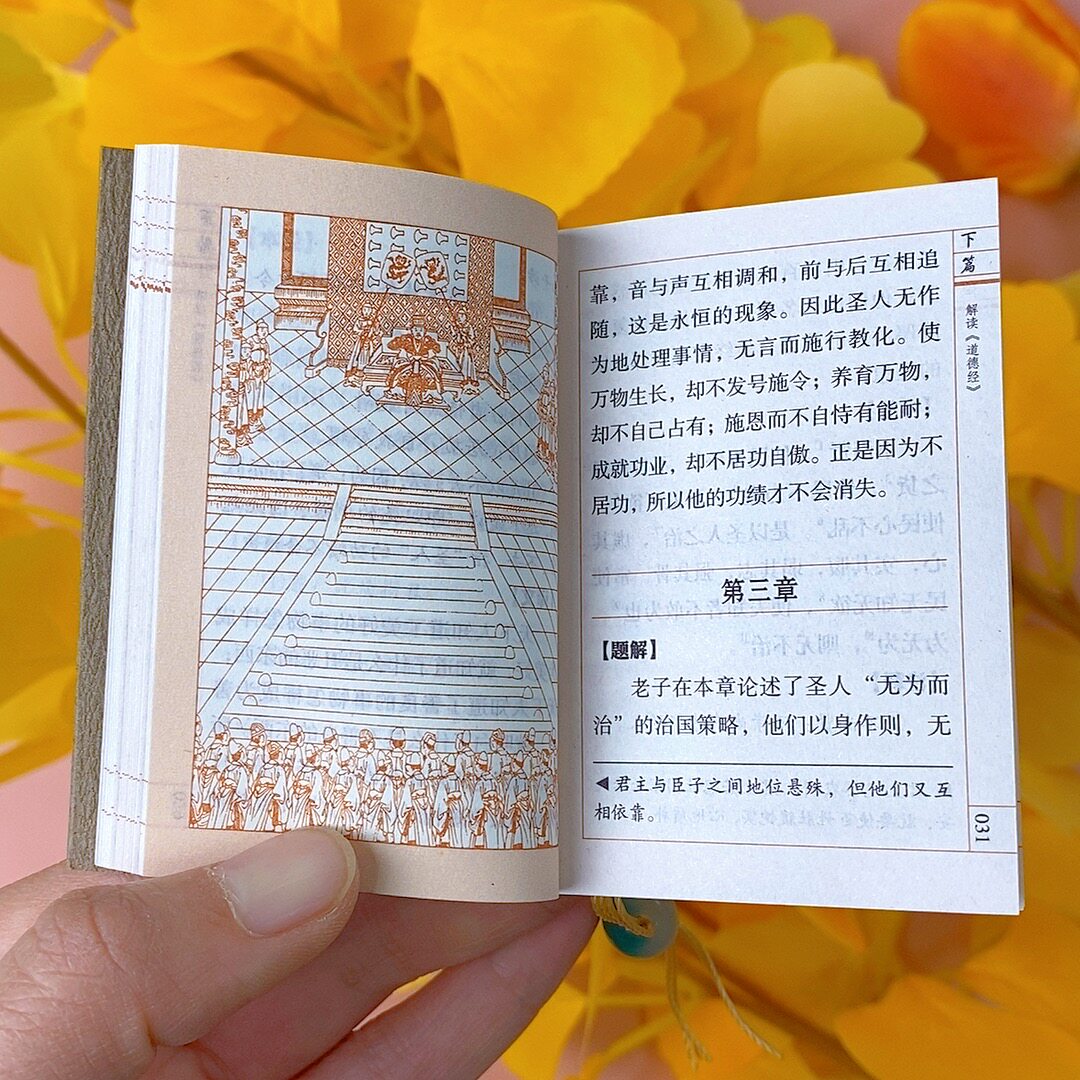 靠，音与声互相调和，前与后互相追
随，这是永恒的现象。因此圣人无作
为地处理事情，无言而施行教化。使
万物生长，却不发号施令；养育万物，
却不自己占有；施恩而不自恃有能耐；
成就功业，却不居功自傲。正是因为不
居功，所以他的功绩才不会消失。
第三章
【题解】
老子在本章论述了圣人“无为而
治”的治国策略，他们以身作则，无
◀君主与臣子之间地位悬殊，但他们又互
相依靠。
下篇
解读《道德经》
031